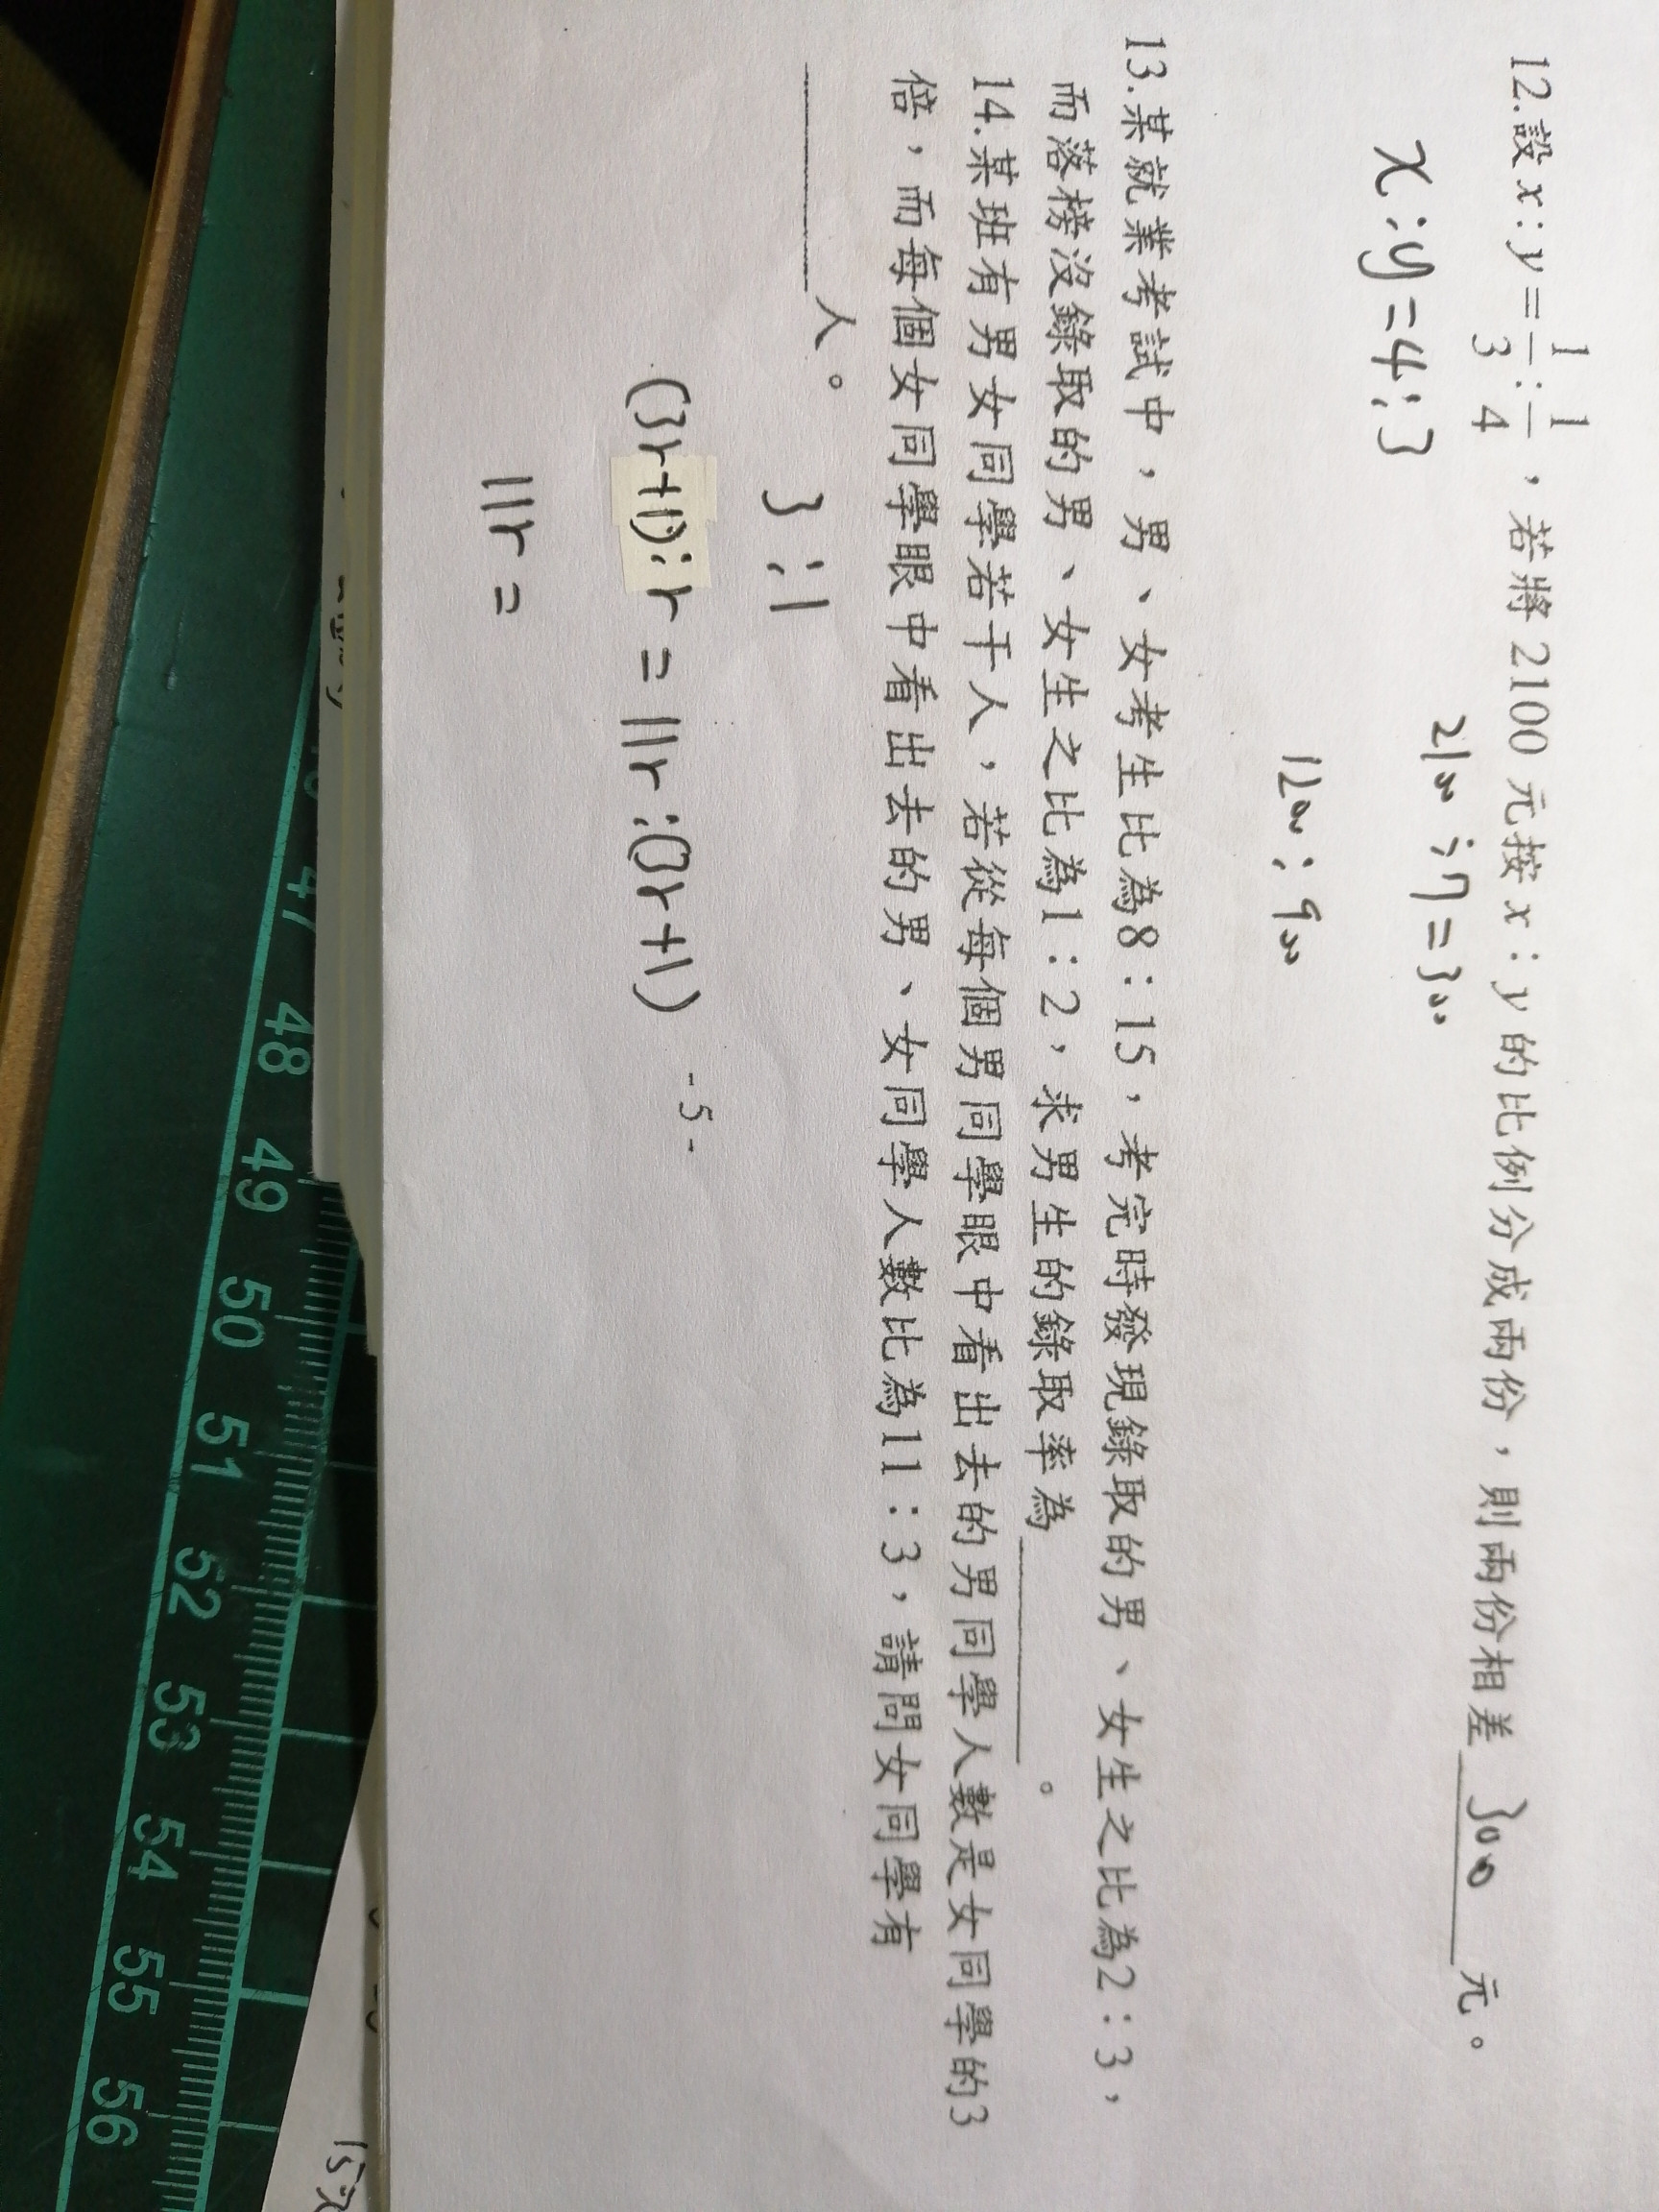 12.設 x:y=1/3:1/4，若將 2100 元按 x:y 的比例分成兩份，則兩份相差 300 元。
x:y=4:3
2100÷7=300
1200:900
13.某就業考試中，男、女考生比為8:15，考完時發現錄取的男、女生之比為2:3，
而落榜沒錄取的男、女生之比為1:2，求男生的錄取率為______。
14.某班有男女同學若干人，若從每個男同學眼中看出去的男同學人數是女同學的3
倍，而每個女同學眼中看出去的男、女同學人數比為11:3，請問女同學有
______人。
3:1
(3r+1):r=11r:(3r+1)
11r=
-5-
47 48 49 50 51 52 53 54 55 56